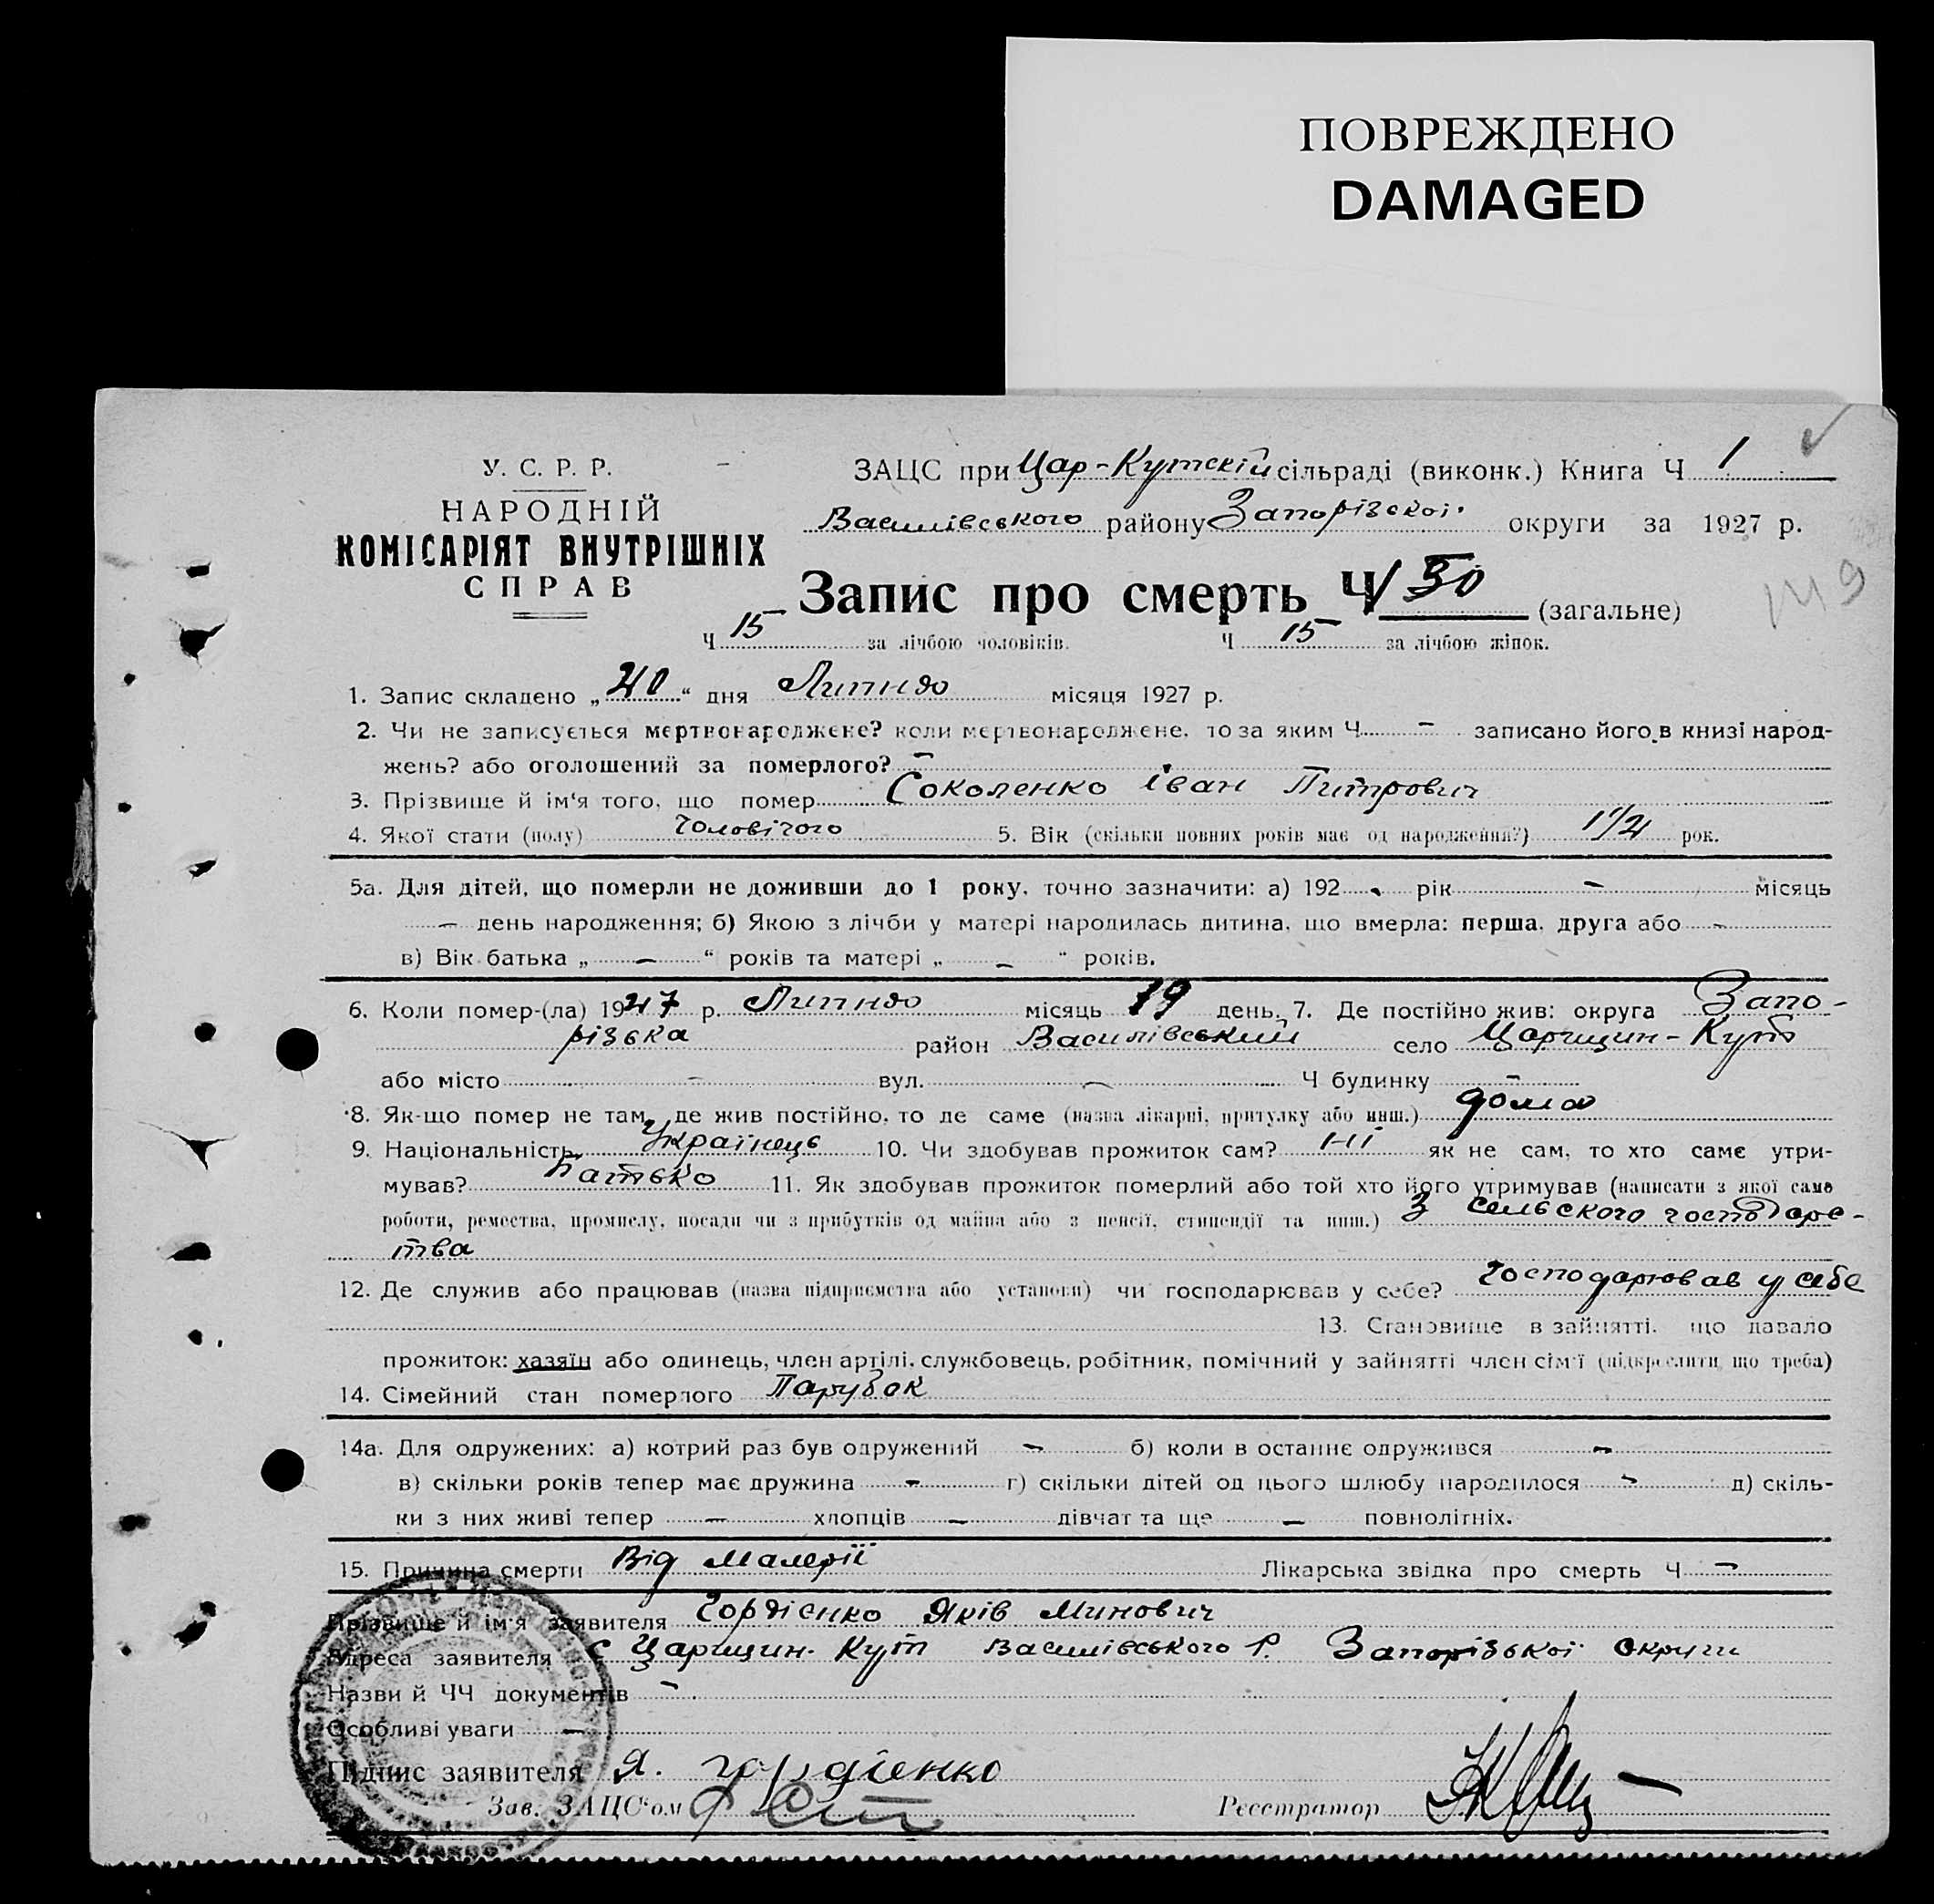 ПОВРЕЖДЕНО
DAMAGED
У. С. Р. Р.
НАРОДНІЙ
КОМІСАРІЯТ ВНУТРІШНІХ
СПРАВ
ЗАЦС при Цар-Кутскій сільраді (виконк.) Книга Ч 1
Василівського району Запорізскоі округи за 1927 р.
Запис про смерть Ч 30 (загальне)
149
Ч 15 за лічбою чоловіків. Ч 15 за лічбою жінок.
1. Запис складено „20“ дня Липндо місяця 1927 р.
2. Чи не записується мертвонароджене? коли мертвонароджене, то за яким Ч — записано його в книзі народ-
жень? або оголошений за померлого? —
3. Прізвище й ім'я того, що помер Соколенко Іван Питрович
4. Якої стати (полу) чоловічого 5. Вік (скільки повних років має од народження?) 1½ рок.
5а. Для дітей, що померли не доживши до 1 року, точно зазначити: а) 192 - рік — місяць
— день народження; б) Якою з лічби у матері народилась дитина, що вмерла: перша, друга або —
в) Вік батька „ — “ років та матері „ — “ років.
6. Коли помер-(ла) 1927 р. Липндо місяць 19 день. 7. Де постійно жив: округа Запо-
різька район Василівський село Царицин-Кут
або місто — вул. — Ч будинку —
8. Як-що помер не там, де жив постійно, то де саме (назва лікарні, притулку або инш.) дома
9. Національність Українець 10. Чи здобував прожиток сам? Ні як не сам, то хто саме утри-
мував? Батько 11. Як здобував прожиток померлий або той хто його утримував (написати з якої саме
роботи, ремества, промислу, посади чи з прибутків од майна або з пенсії, стипендії та инш.) З сельского господарс-
тва
12. Де служив або працював (назва підприємства або установи) чи господарював у себе? Господарював у себе
13. Становище в зайнятті, що давало
прожиток: хазяїн або одинець, член артілі, службовець, робітник, помічний у зайнятті член сім'ї (підкреслити що треба)
14. Сімейний стан померлого Парубок
14а. Для одружених: а) котрий раз був одружений — б) коли в останнє одружився —
в) скільки років тепер має дружина — г) скільки дітей од цього шлюбу народилося — д) скіль-
ки з них живі тепер — хлопців — дівчат та ще — повнолітніх.
15. Причина смерти Від Малерії Лікарська звідка про смерть Ч —
Прізвище й ім'я заявителя Гордієнко Яків Минович
Адреса заявителя с Царицин-Кут Василівського Р. Запорізькоі округи
Назви й ЧЧ документів —
Особливі уваги —
Підпис заявителя Я. Гордіенко
Зав. ЗАЦС'ом Реєстратор